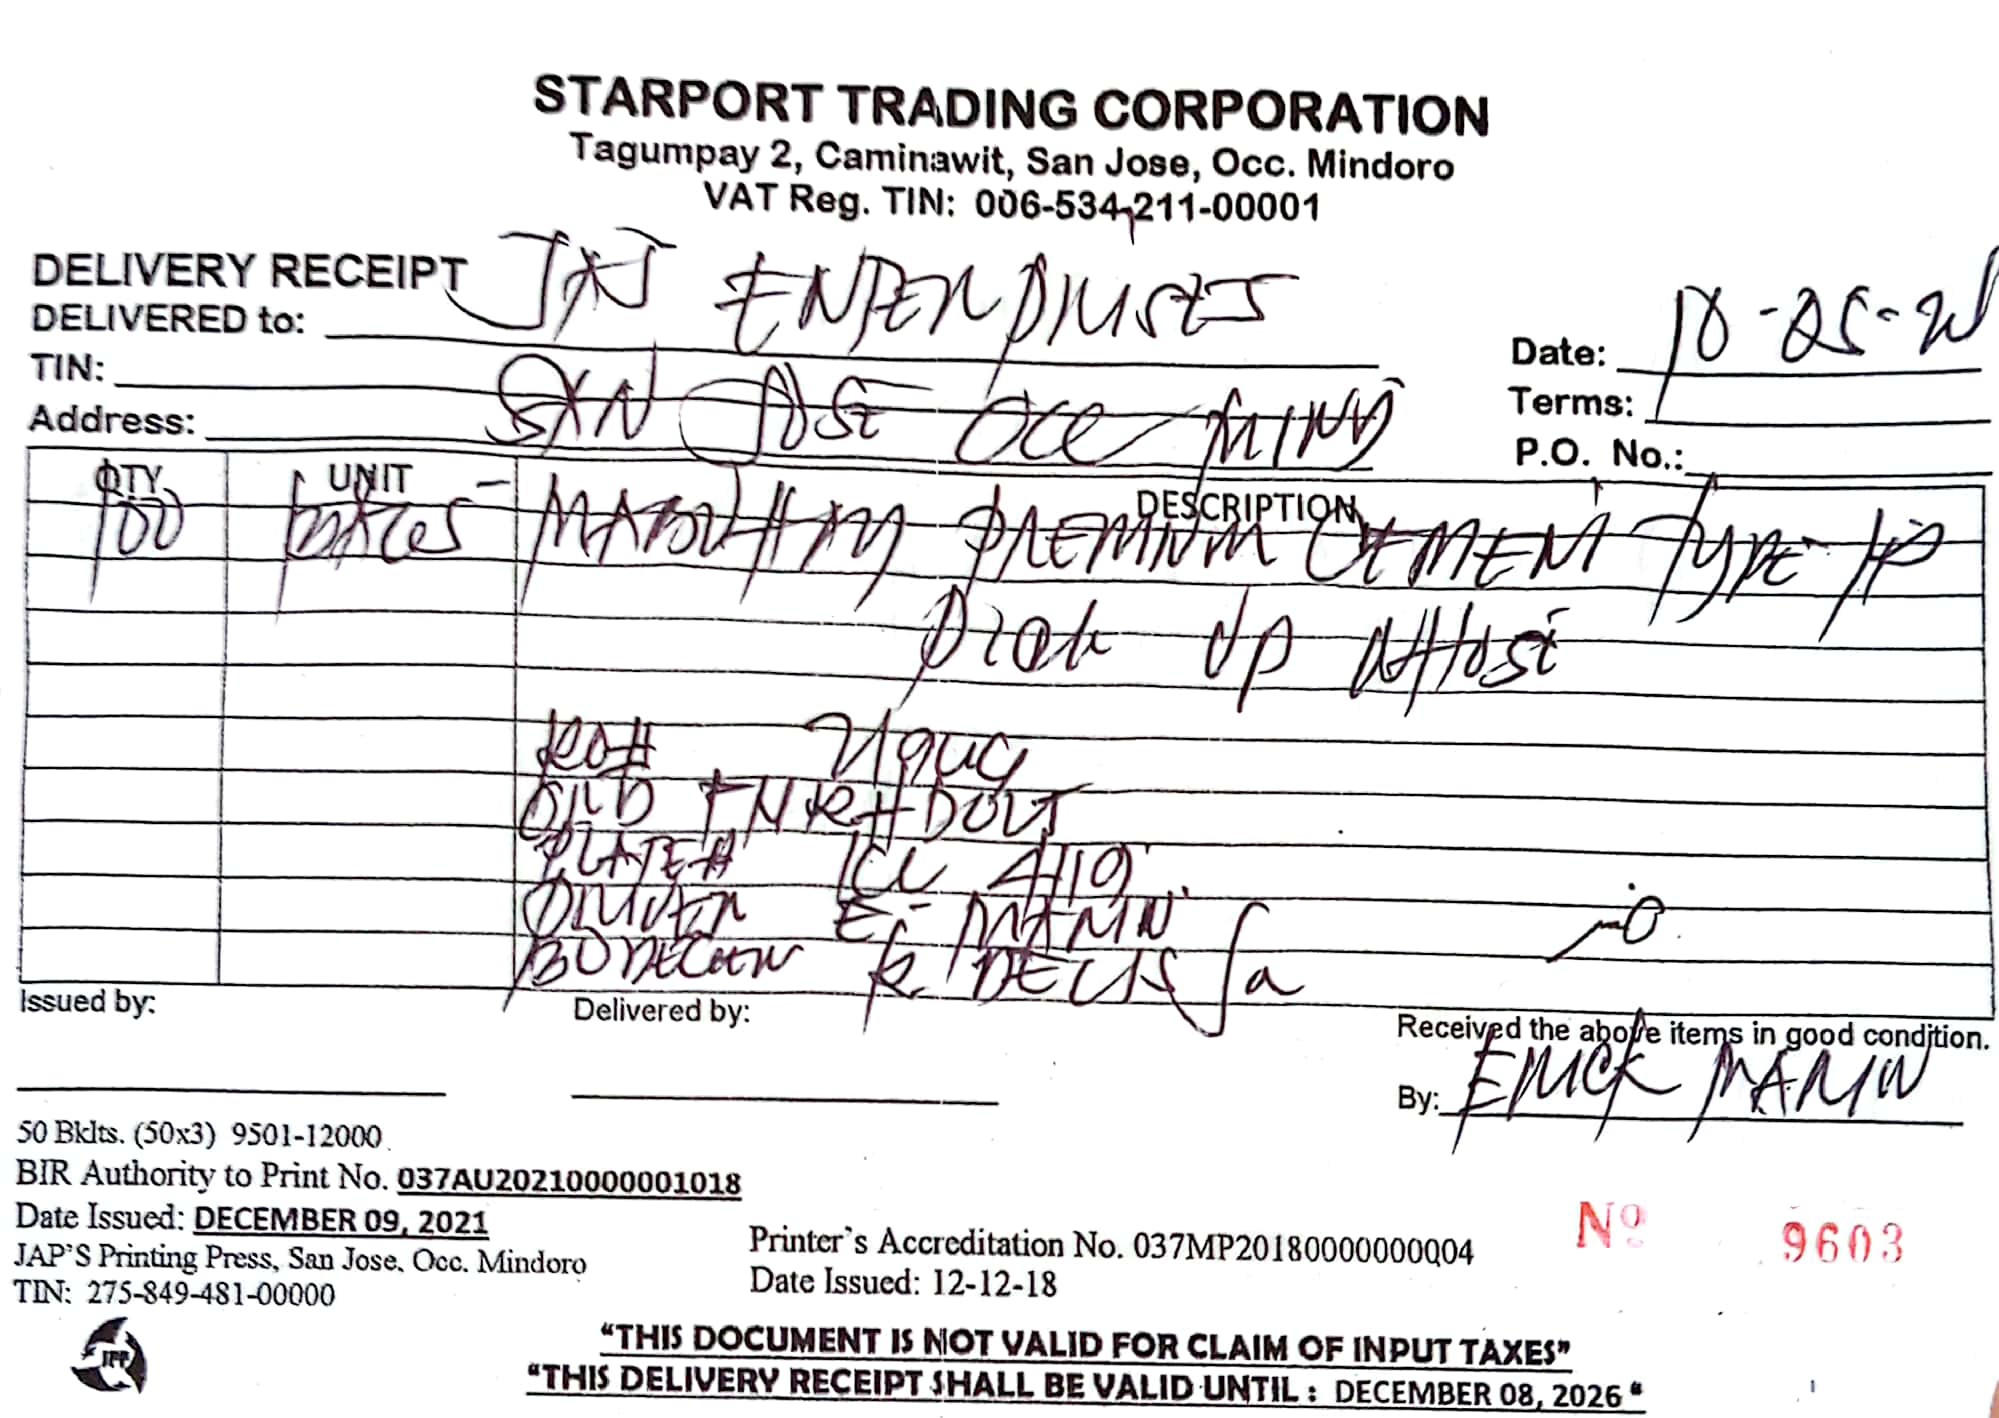 STARPORT TRADING CORPORATION
Tagumpay 2, Caminawit, San Jose, Occ. Mindoro
VAT Reg. TIN: 006-534-211-00001
DELIVERY RECEIPT
DELIVERED to: J&J ENTERPRISES
Date: 10-25-
TIN:
Terms:
Address: SAN JOSE OCC MIND
P.O. No.:
QTY UNIT DESCRIPTION
100 - PREMIUM CEMENT TYPE 1P
Pick UP
PLATE#
DRIVER E. MARIN
Issued by:
Delivered by:
Received the above items in good condition.
By: ERICK MARIN
50 Bklts. (50x3) 9501-12000
BIR Authority to Print No. 037AU20210000001018
Date Issued: DECEMBER 09, 2021
JAP'S Printing Press, San Jose, Occ. Mindoro
TIN: 275-849-481-00000
Printer's Accreditation No. 037MP20180000000004
Date Issued: 12-12-18
No 9603
JPP
"THIS DOCUMENT IS NOT VALID FOR CLAIM OF INPUT TAXES"
"THIS DELIVERY RECEIPT SHALL BE VALID UNTIL : DECEMBER 08, 2026 "